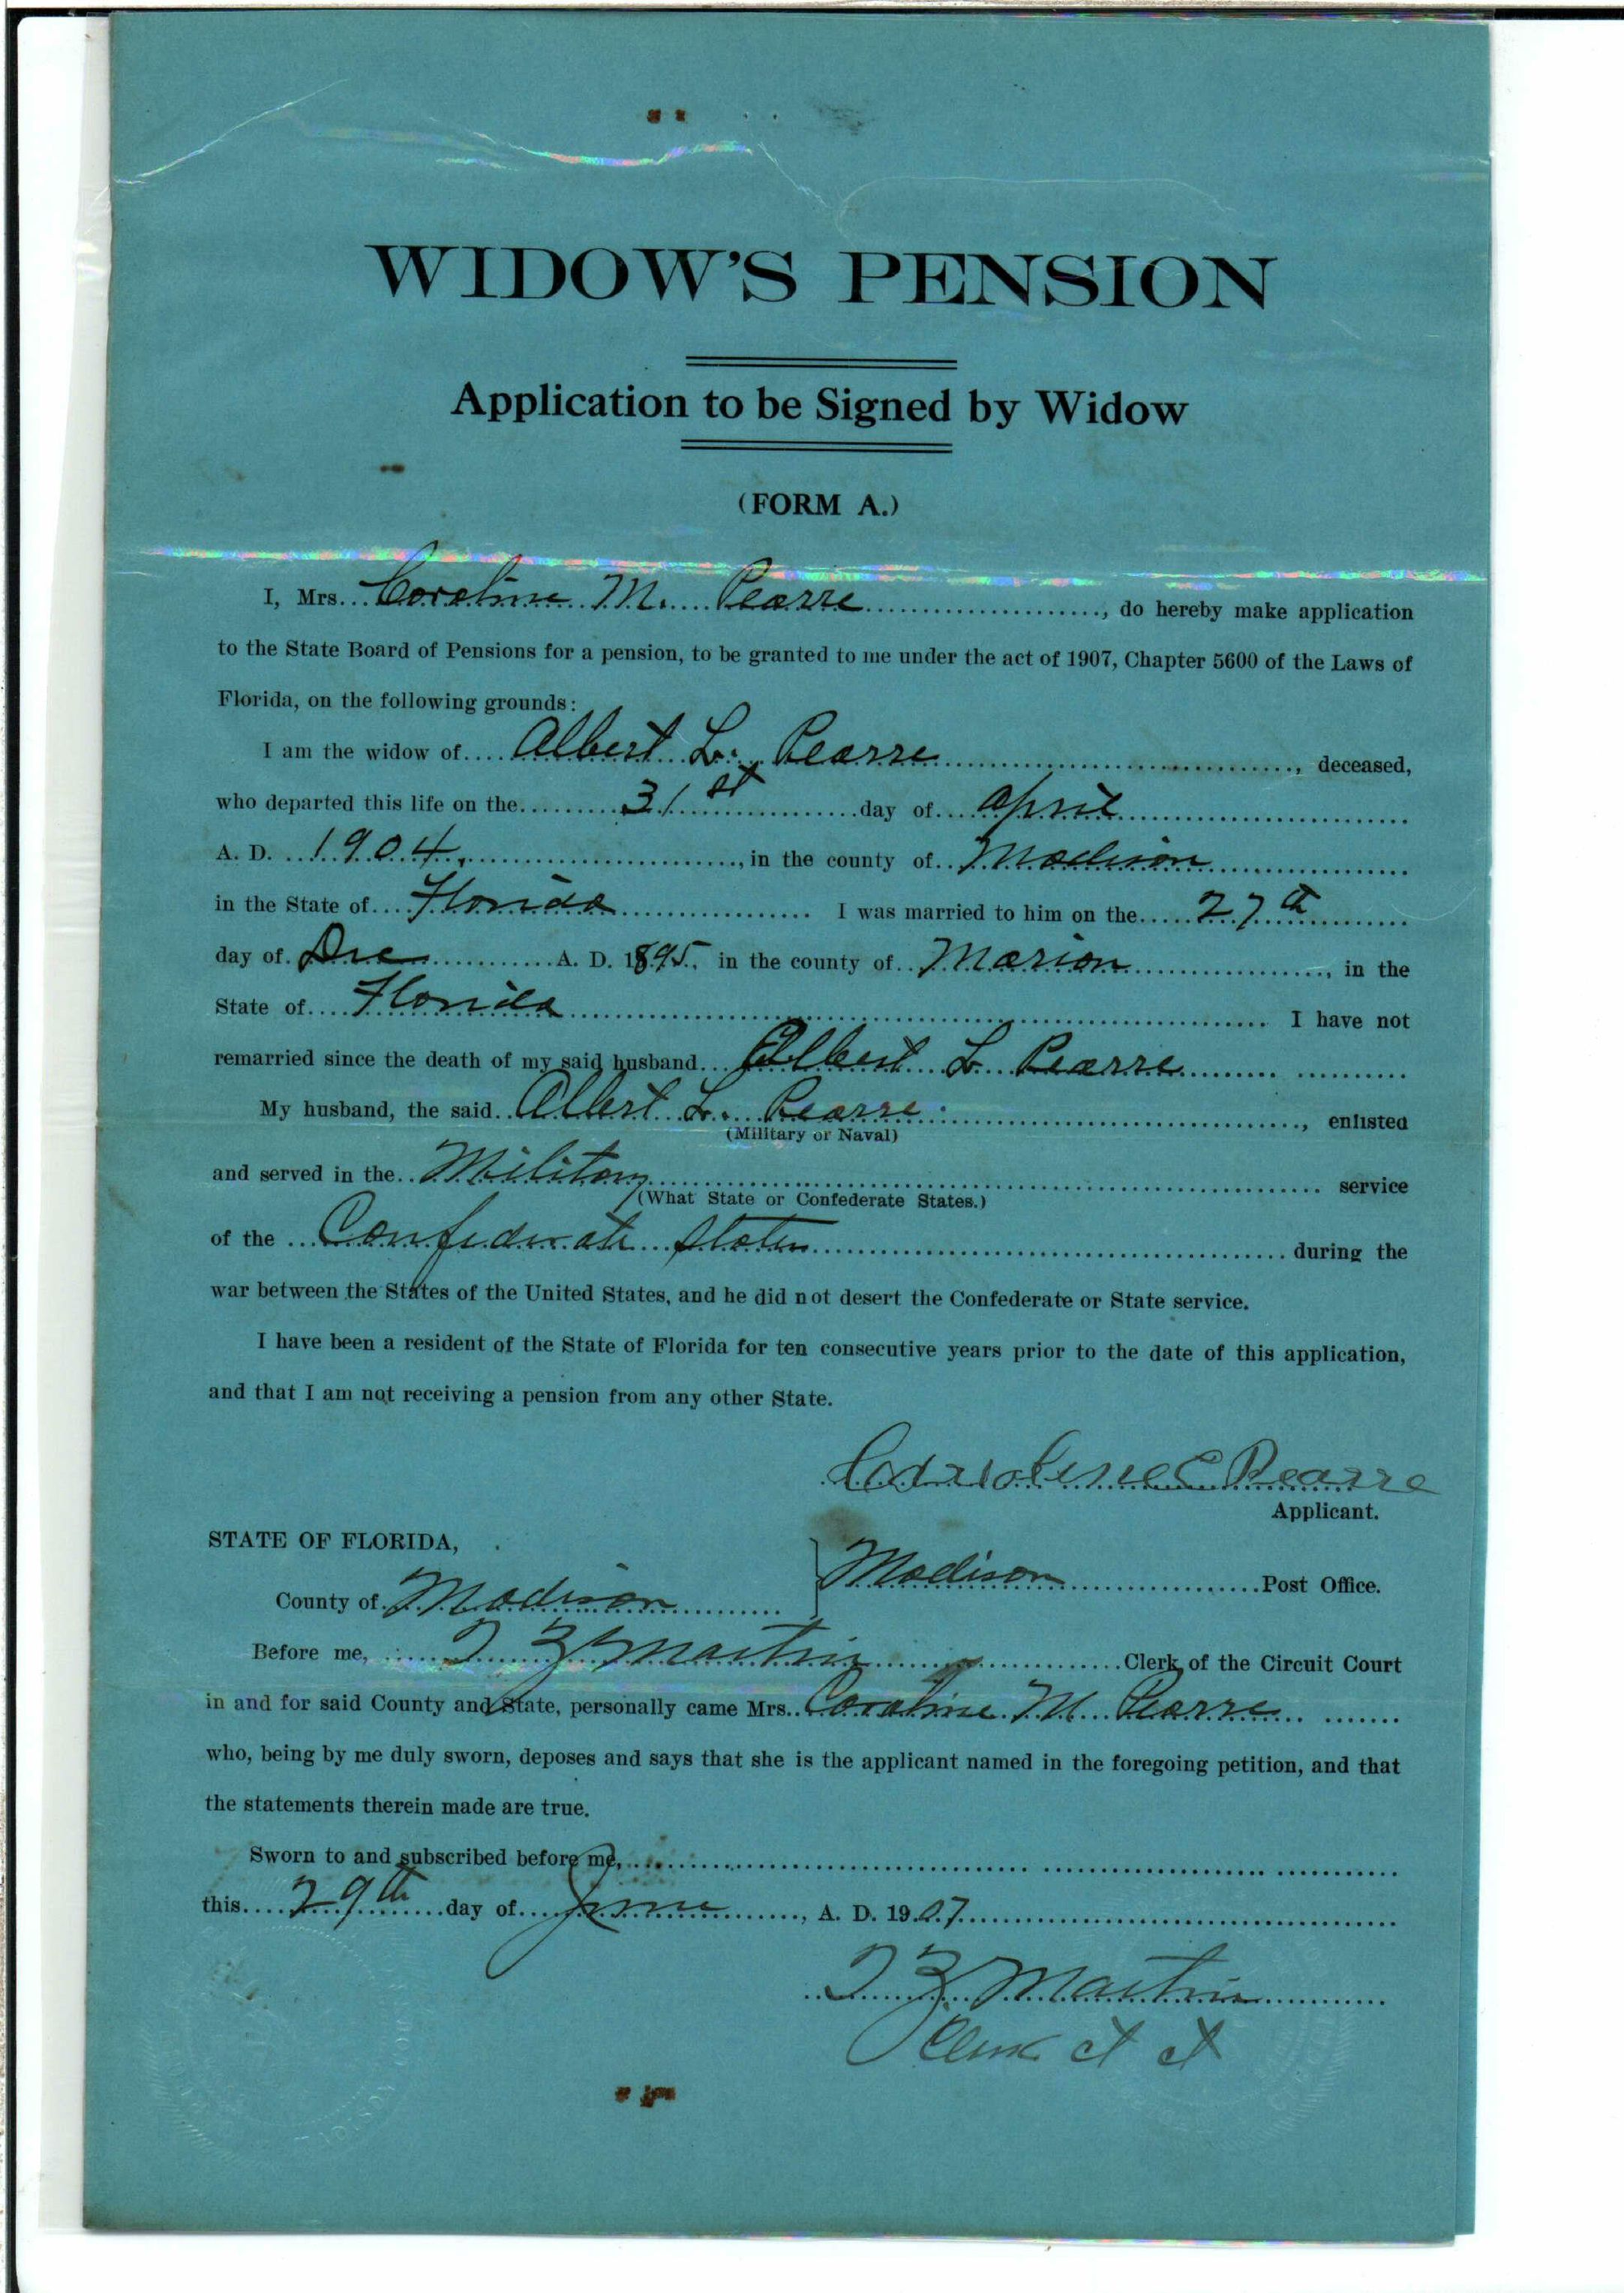 WIDOW'S PENSION
Application to be Signed by Widow
(FORM A.)
I, Mrs. Caroline M. Pearre, do hereby make application
to the State Board of Pensions for a pension, to be granted to me under the act of 1907, Chapter 5600 of the Laws of
Florida, on the following grounds:
I am the widow of Albert L. Pearre, deceased,
who departed this life on the 31st day of April
A. D. 1904, in the county of Madison
in the State of Florida I was married to him on the 27th
day of Dec A. D. 1895, in the county of Marion, in the
State of Florida I have not
remarried since the death of my said husband Albert L Pearre
My husband, the said Albert L. Pearre, enlisted
(Military or Naval)
and served in the Military service
(What State or Confederate States.)
of the Confederate States during the
war between the States of the United States, and he did not desert the Confederate or State service.
I have been a resident of the State of Florida for ten consecutive years prior to the date of this application,
and that I am not receiving a pension from any other State.
Pearre
Applicant.
STATE OF FLORIDA,
County of Madison
Madison Post Office.
Before me, Martin Clerk of the Circuit Court
in and for said County and State, personally came Mrs. Caroline M. Pearre
who, being by me duly sworn, deposes and says that she is the applicant named in the foregoing petition, and that
the statements therein made are true.
Sworn to and subscribed before me,
this 29th day of June, A. D. 1907
Martin
Clerk ct ct